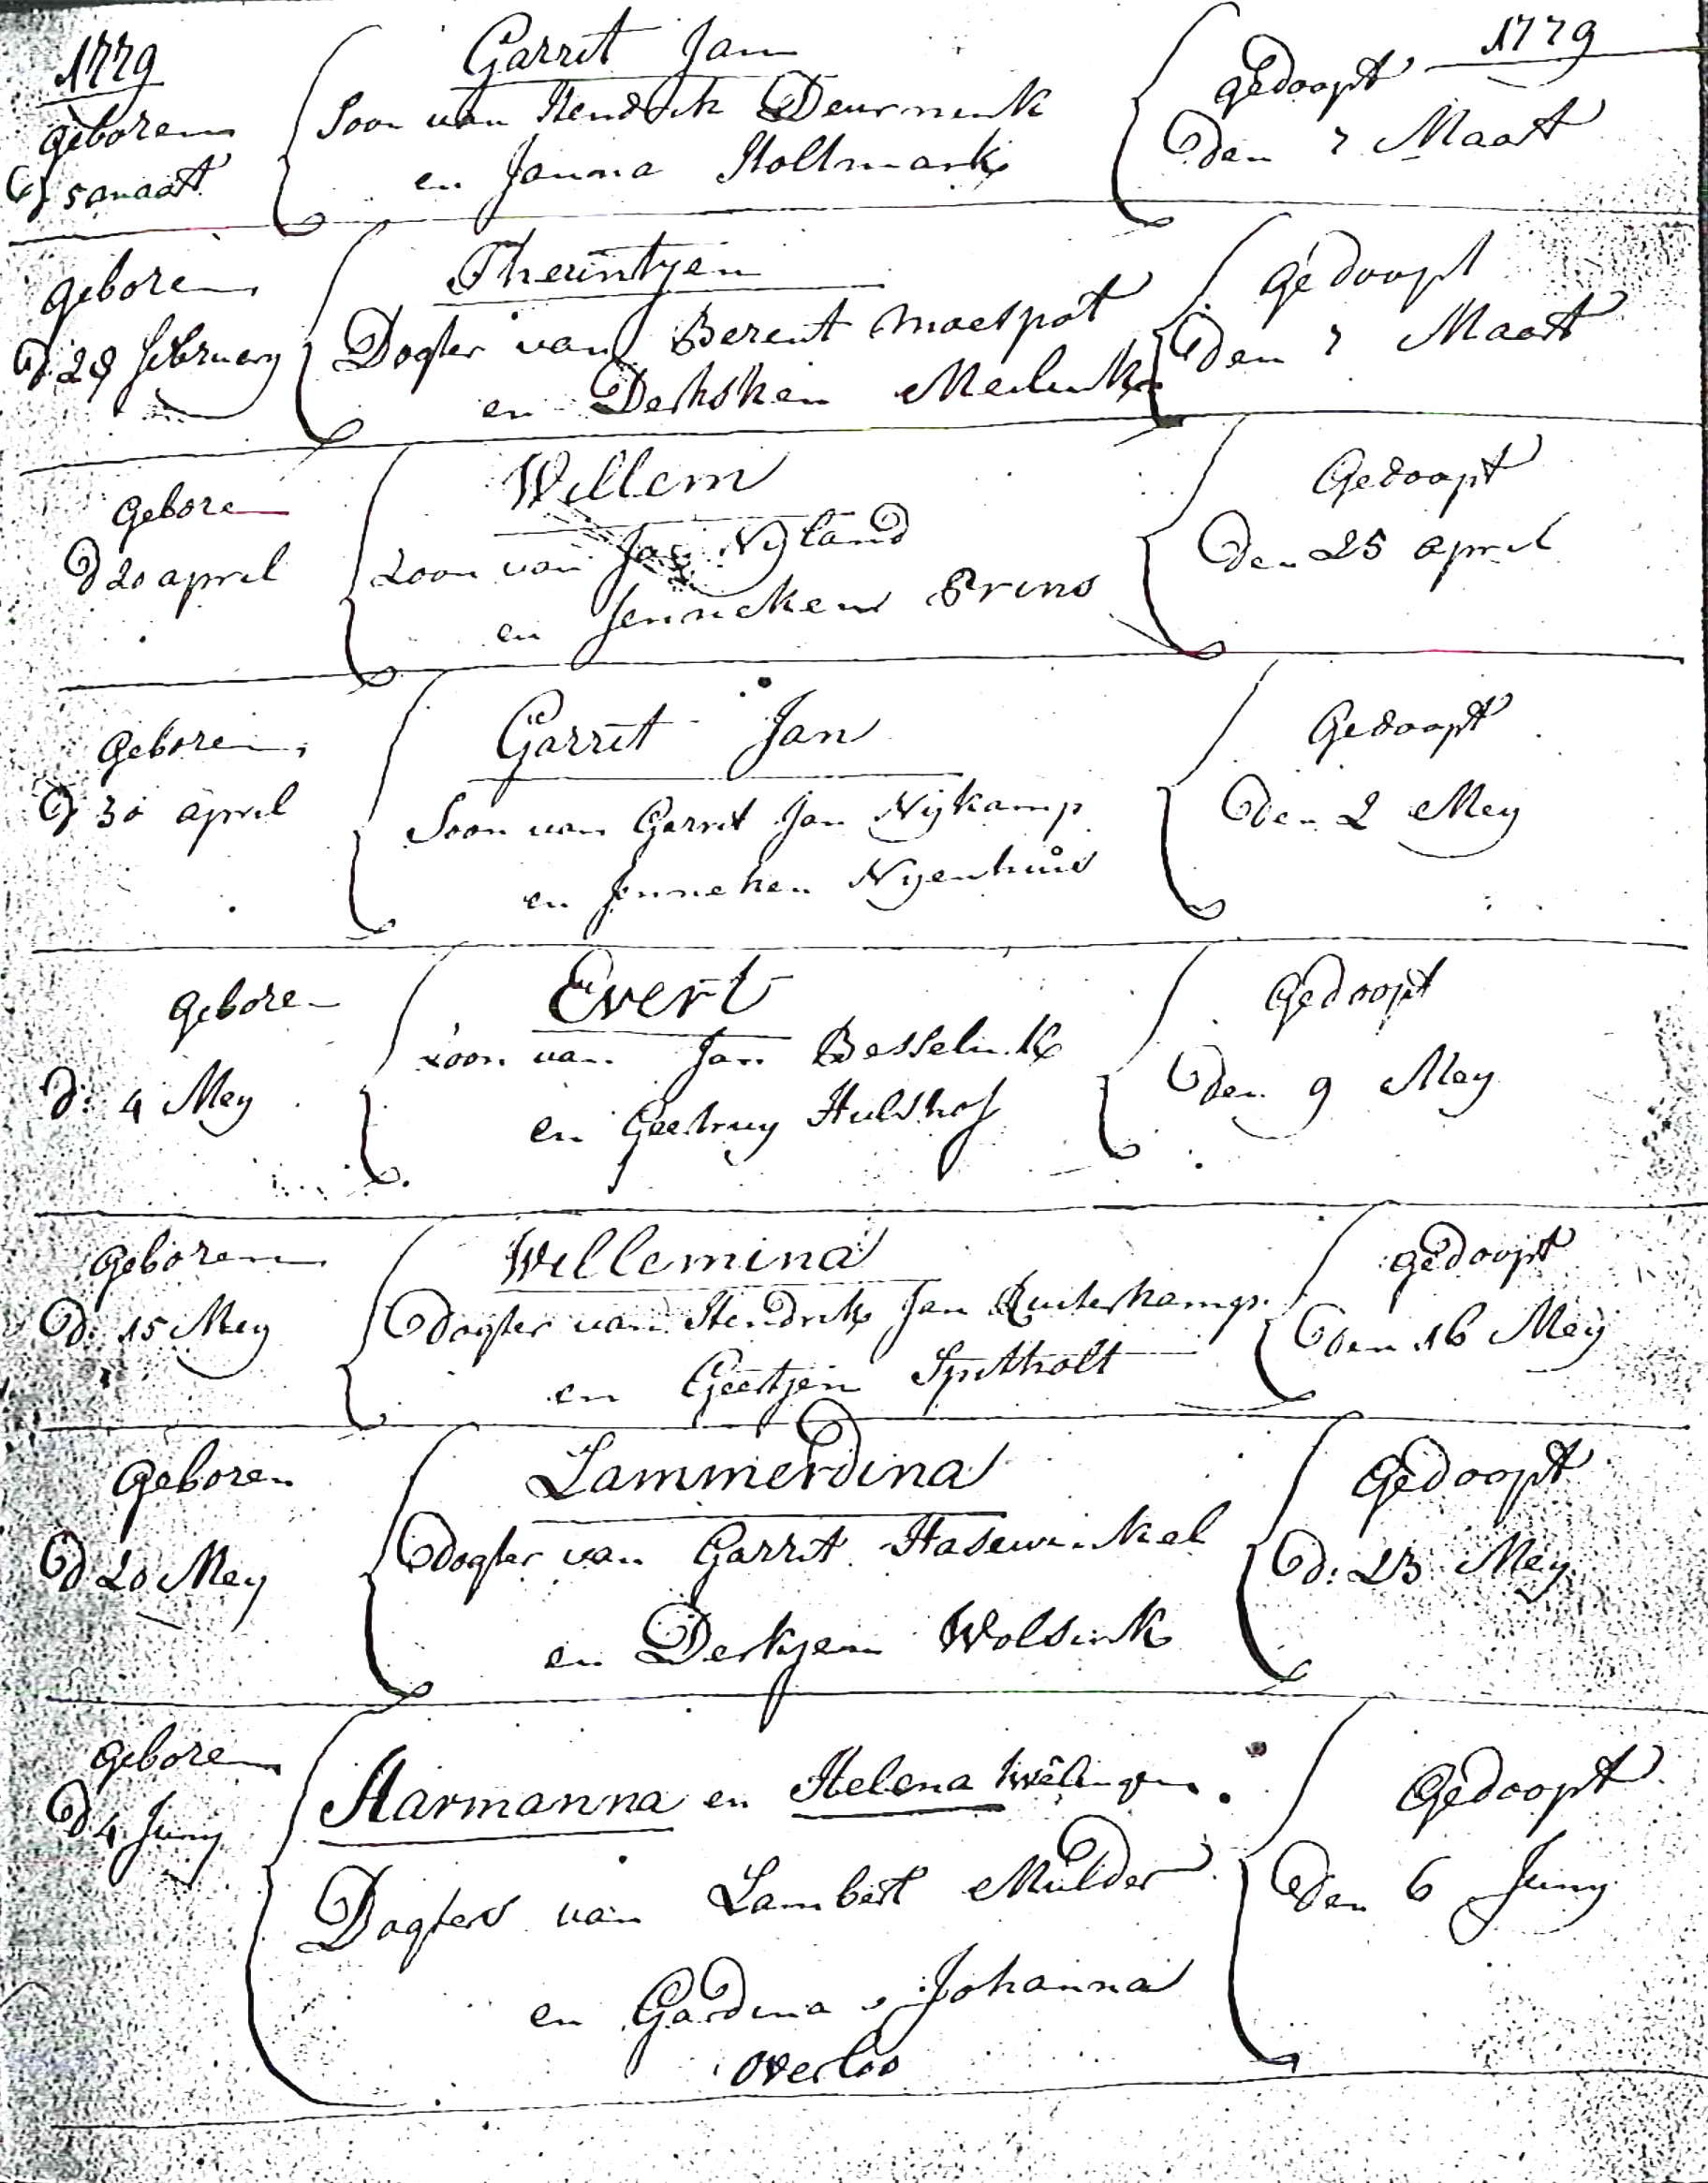 1779
geboren
d 5 maart
Garrit Jan
Soon van Hendrik Deurnink
en Janna Holtmark
1779
gedoopt
den 7 Maart
geboren
d. 28 february
Theuntjen
Dogter van Berent Maespot
en Derksken Meilink
gedoopt
den 7 Maart
Geboren
d 20 april
Willem
Zoon van Jan Nyland
en Jenneken Prins
Gedoopt
den 25 april
Geboren
d 30 april
Garrit Jan
Soon van Garrit Jan Nijkamp
en Jenneken Nyenhuis
Gedoopt
den 2 Mey
Geboren
d: 4 Mey
Evert
Zoon van Jan Besselink
en Geertruy Hulshof
Gedoopt
den 9 Mey
Geboren
d. 15 Mey
Willemina
dogter van Hendrik Jan Ruiterkamp
en Geertjen Spitholt
gedoopt
den 16 Mey
Geboren
d 20 Mey
Lammerdina
dogter van Garrit Hasewinkel
en Derkjen Wolsink
Gedoopt
d: 23 Mey
Geboren
d 4 Juny
Harmanna en Helena twelingen
Dogters van Lambert Mulder
en Gardina Johanna
Overloo
Gedoopt
den 6 Juny